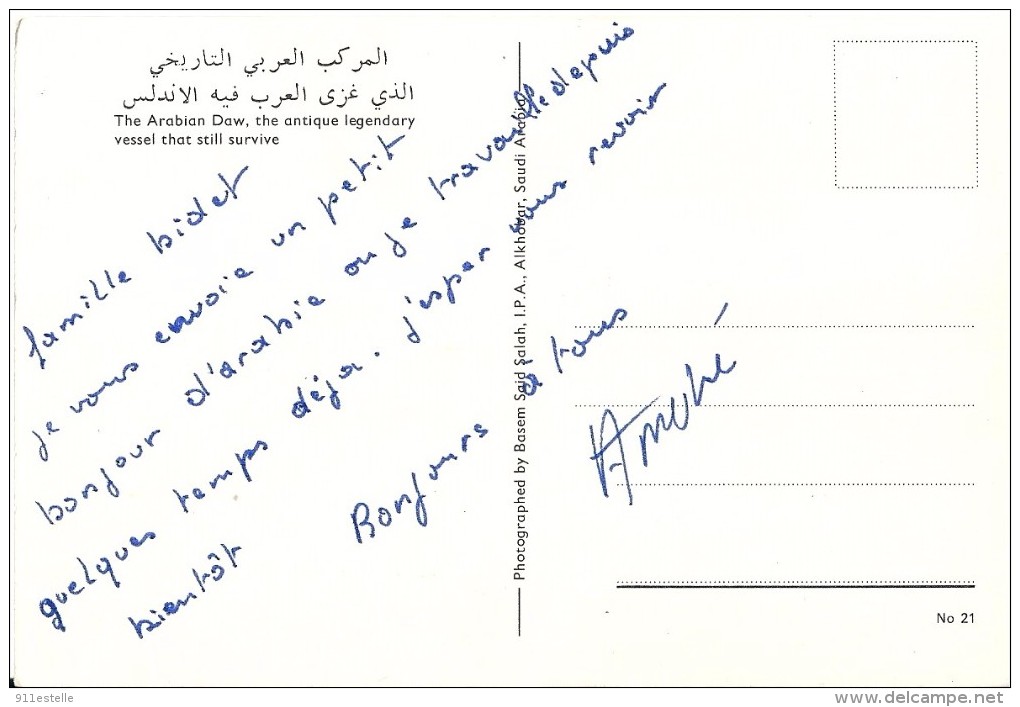 المركب العربي التاريخي
الذي غزى العرب فيه الاندلس
The Arabian Daw, the antique legendary
vessel that still survive
famille bidet
je vous envoie un petit
bonjour d'arabie ou je travaille depuis
quelques temps déja. j'esper vous revoir
bientôt
Bonjours a tous
Photographed by Basem Said Salah, I.P.A., Alkhobar, Saudi Arabia
No 21
911estelle
www.delcampe.net